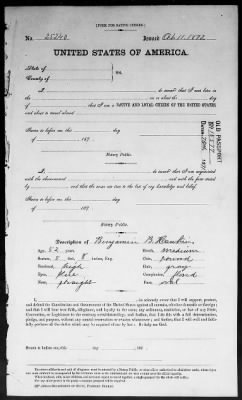 [FORM FOR NATIVE CITIZEN.]
No. 25240 Issued Oct. 11. 1872
UNITED STATES OF AMERICA.
State of
County of ss.
I, do swear that I was born in
on or about the day
of that I am a NATIVE AND LOYAL CITIZEN OF THE UNITED STATES
and about to travel abroad
Sworn to before me, this day
of 187
Notary Public.
I, do swear that I am acquainted
with the above-named and with the facts stated
by and that the same are true to the best of my knowledge and belief.
Sworn to before me, this day
of 187
Notary Public.
OLD PASSPORT
Description of Benjamin B.
Age: 52 years. Mouth: medium
Stature: 5 feet 8 inches, Eng. Chin: round
Forehead: high Hair: gray
Eyes: Complexion:
Nose: straight Face: oval
I, do solemnly swear that I will support, protect,
and defend the Constitution and Government of the United States against all enemies, whether domestic or foreign;
and that I will bear true faith, allegiance, and loyalty to the same, any ordinance, resolution, or law of any State,
Convention, or Legislature to the contrary notwithstanding; and further, that I do this with a full determination,
pledge, and purpose, without any mental reservation or evasion whatsoever; and further, that I will well and faithfully
perform all the duties which may be required of me by law: So help me God.
Sworn to before me, this day 187
Notary Public.